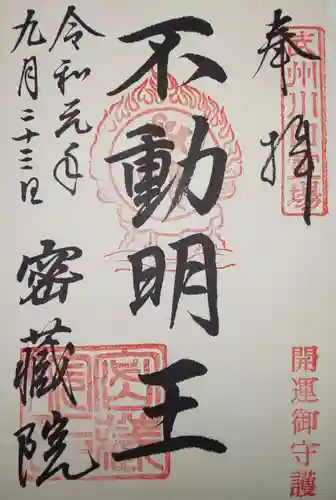 奉拝
不動明王
令和元年
九月二十三日
密蔵院
開運御守護